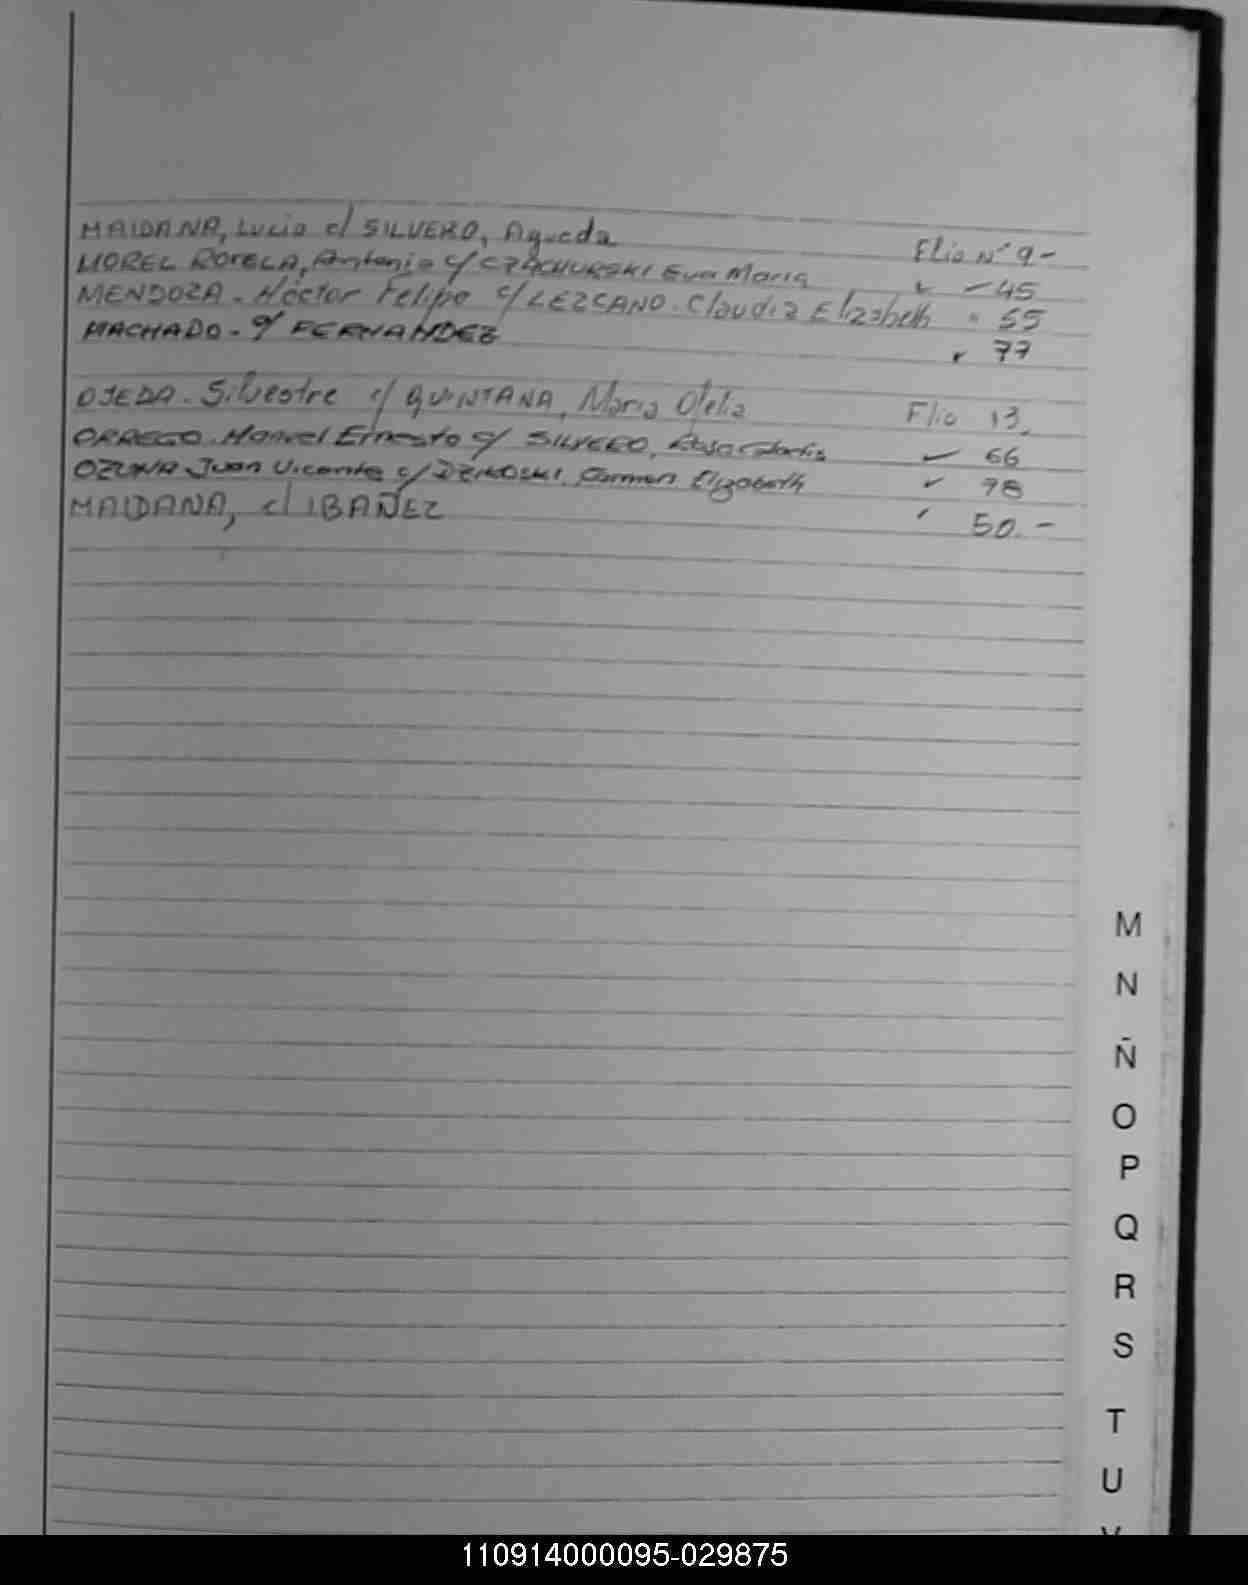 MAIDANA, Lucio c/ SILVERO, Agueda Flio Nº 9-
MOREL ROTELA, Antonio c/ CZACHURSKI Eva Maria " -45
MENDOZA. Héctor Felipe c/ LEZCANO. Claudia Elizabeth " 55
MACHADO- c/ FERNANDEZ " 77
OJEDA. Silvestre c/ QUINTANA, Maria Ofelia Flio 13.
ORREGO. Manuel Ernesto c/ SILVERO, Rosa 66
OZUNA Juan Vicente c/ Carmen Elizabeth " 98
MAIDANA, c/ IBAÑEZ " 50.-
M
N
Ñ
O
P
Q
R
S
T
U
V
110914000095-029875